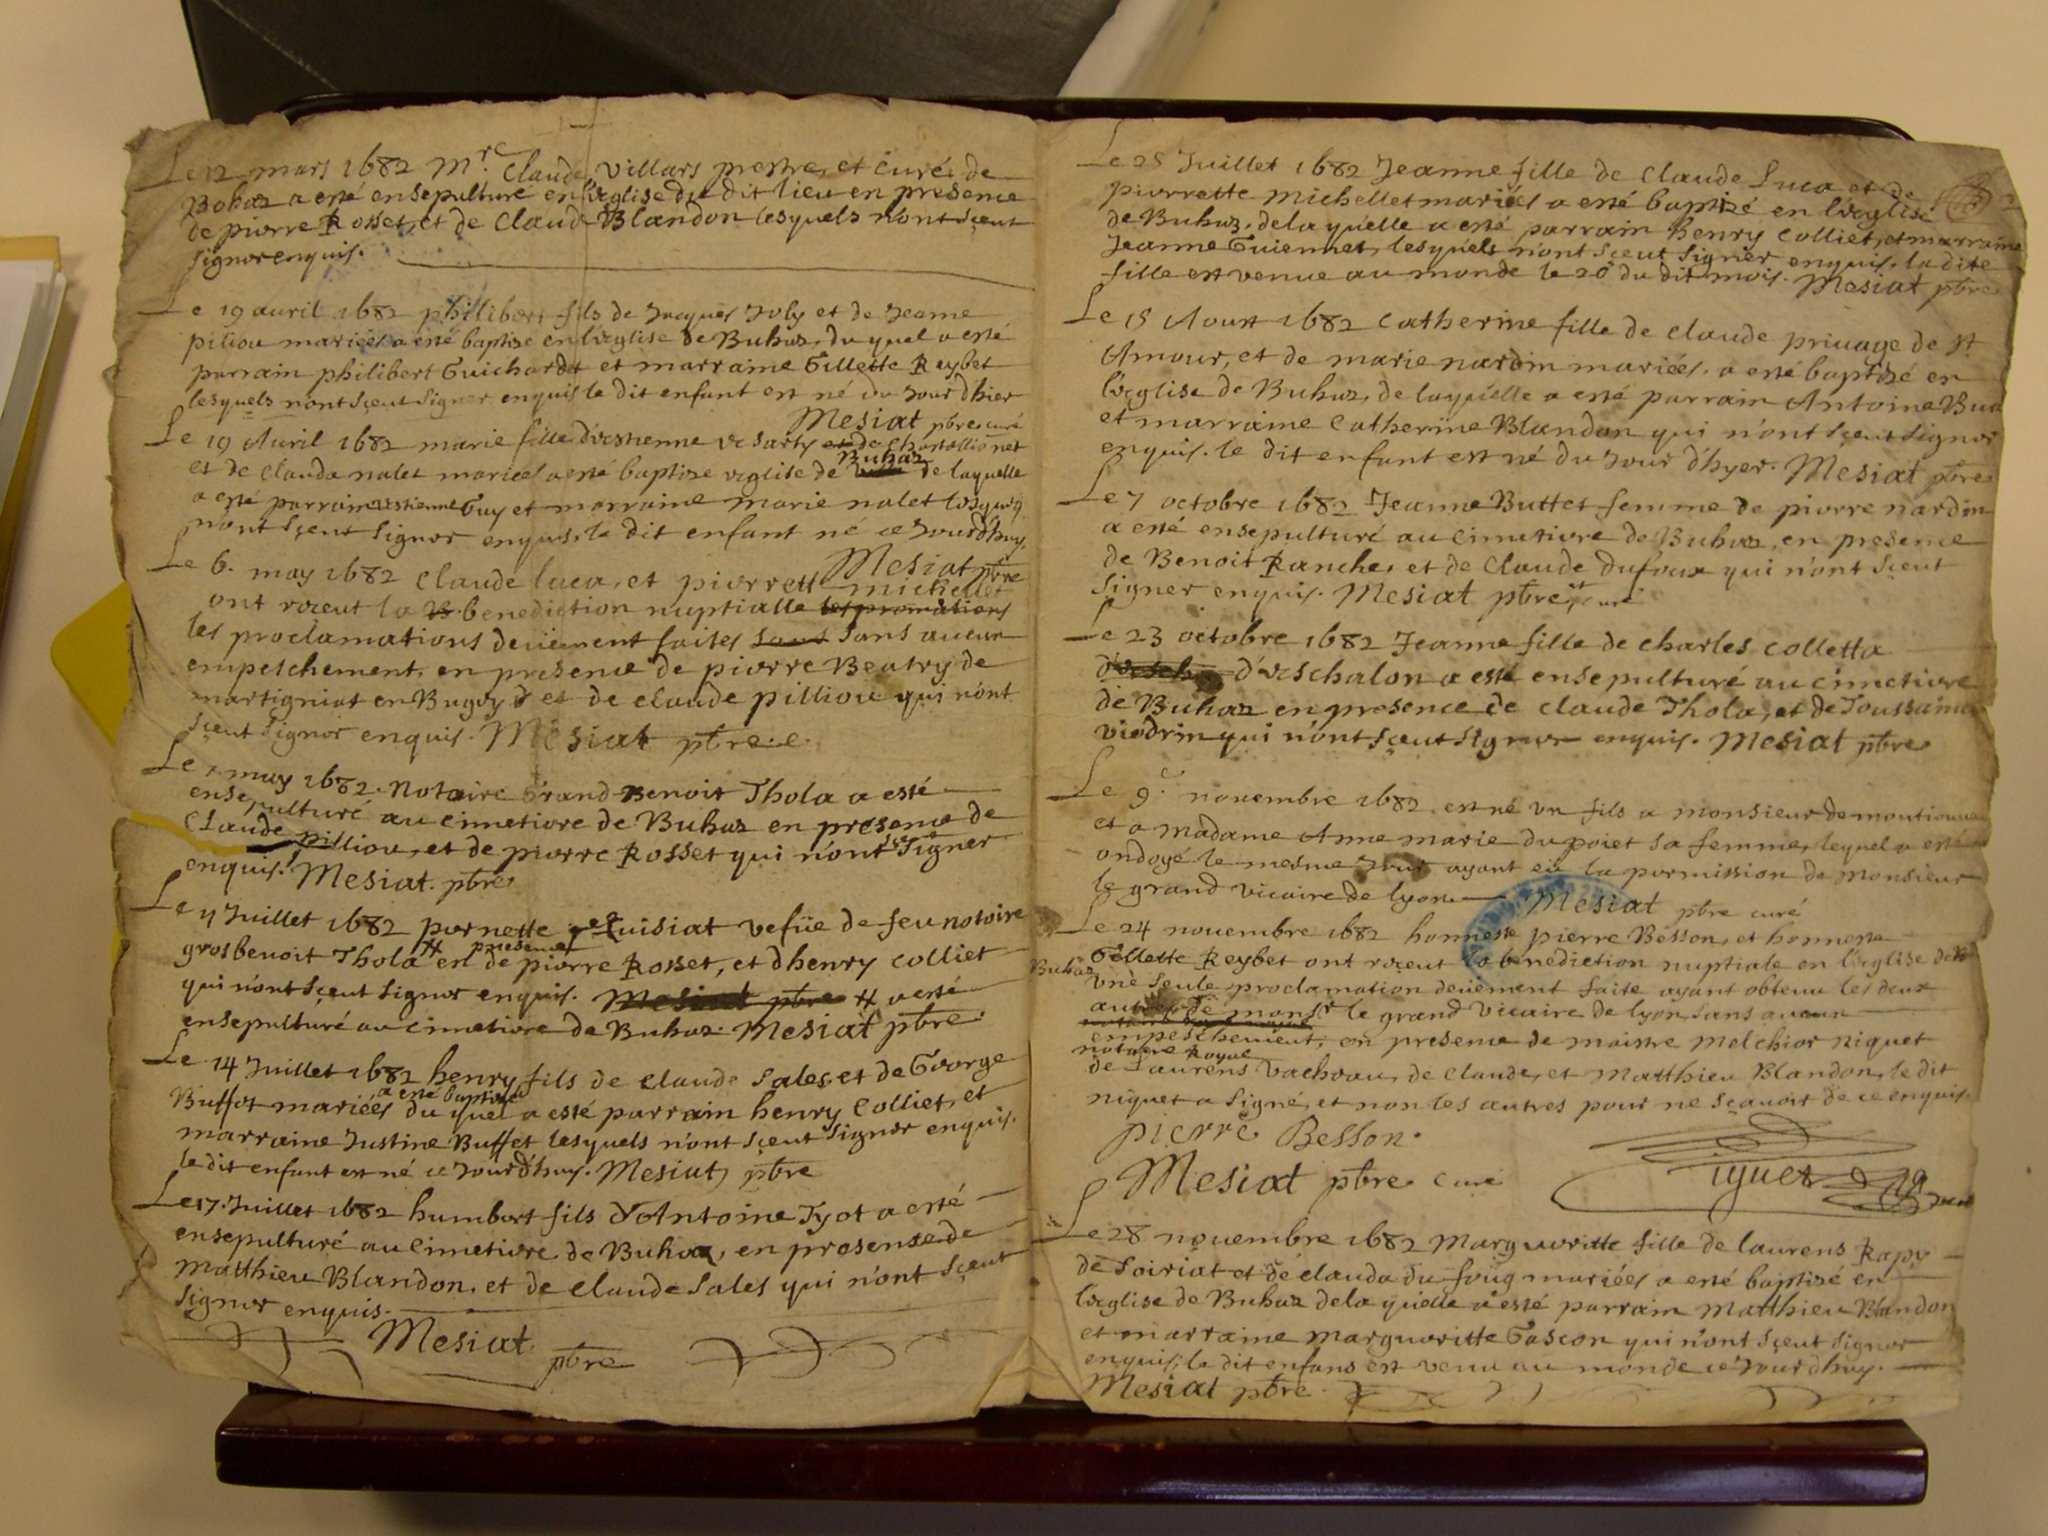 Le 12 mars 1682 Mre Claude Villars prestre, et curé de
Bohaz a esté ensepulturé en l'église du dit lieu en presence
de pierre Rosset, et de Claude Blandon lesquels n'ont sçeut
signer enquis.
Le 19 auril 1682 philibert fils de Jacques Joly et de Jeanne
piliou mariées a esté baptisé en l'église de Buhaz, du quel a esté
parrain philibert Guichardet et marraine Gillette Reybet
lesquels n'ont sçeut signer enquis le dit enfant est né du Jour d'hier
Mesiat pbre curé
Le 19 Auril 1682 marie fille d'estienne de Chatellionet
et de Clauda nalet mariées a esté baptisé église de Buhaz de laquelle
a esté parrain estienne Guy et marraine marie nalet lesquels
n'ont sçeut signer enquis, le dit enfant né ce Jourd'huy,
Mesiat pbre
Le 6. may 1682 Claude luca, et pierrett michellet
ont rœut la benediction nuptialle
les proclamations deüement faites sans aucun
empeschement, en presence de pierre Beatry de
martigniat en Bugey et de Claude pilliou qui n'ont
sçeut signer enquis. Mesiat pbre. c.
Le may 1682. Notaire Grand Benoit Thola a esté
ensepulturé au cimetiere de Buhaz en presence de
Claude pilliou, et de pierre Rosset qui n'ont signer
enquis. Mesiat. pbre
Le 11 Juillet 1682 pernette uisiat vefüe de feu notoire
gros benoit Thola # en presence de pierre Rosset, et d'henry Colliet
qui n'ont sçeut signer enquis. Mesiat pbre # a esté
ensepulturé au cimetiere de Buhaz. Mesiat pbre.
Le 14 Juillet 1682 henry fils de Claude Sales, et de George
Buffet mariées a esté baptisé du quel a esté parrain henry Colliet, et
marraine Justine Buffet lesquels n'ont sçeut signer enquis.
le dit enfant est né ce Jourd'huy. Mesiat pbre
Le 17. Juillet 1682 humbert fils d'Antoine Tyot a esté
ensepulturé au cimetiere de Buhaz, en presense de
Matthieu Blandon, et de Claude Sales qui n'ont sçeut
signer enquis.
Mesiat
pbre
Le 28 Juillet 1682 Jeanne fille de Claude Luca et de
pierrette michellet mariées a esté baptizé en l'église
de Buhaz, de la quelle a esté parrain henry Colliet, et marraine
Jeanne Guiennet, lesquels n'ont sçeut signer enquis, la dite
fille est venue au monde le 26 du dit mois. Mesiat pbre
Le 15 Aoust 1682 Catherine fille de Claude priuage de St
Amour, et de marie nardin mariées. a esté baptizé en
l'église de Buhaz, de laquelle a esté parrain Antoine
et marraine Catherine Blandon qui n'ont sçeut signer
enquis. le dit enfant est né du Jour d'hyer. Mesiat pbre
Le 7 octobre 1682 Jeanne Buttet femme de pierre nardin
a esté ensepulturé au cimetiere de Buhaz, en presence
de Benoit Ranche, et de Claude dufour qui n'ont sçeut
signer enquis. Mesiat pbre, et curé
Le 23 octobre 1682 Jeanne fille de charles Colletta
d'eschalon a esté ensepulturé au cimetiere
de Buhaz en presence de Claude Thola, et de Toussaint
viedrin qui n'ont sçeut signer enquis. Mesiat pbre
Le 9e nouembre 1682. est né vn fils a monsieur
et a madame Anne marie du poiet sa femme lequel a esté
ondoyé le mesme Jour ayant eü la permission de Monsieur
le grand vicaire de lyon. Mesiat pbre curé
Le 24 nouembre 1682 honneste pierre Besson, et honneste
Gillette Reybet ont rœut la benediction nuptiale en l'église de
Buhaz
vne seule proclamation deüement faite ayant obtenu les deux
autres de monsr le grand vicaire de lyon sans aucun
empeschement, en presence de maistre Melchior niquet
notaire Royal
de Laurens Vacheau, de Claude, et Matthieu Blandon, le dit
niquet a signé, et non les autres pour ne sçauoir de ce enquis.
pierre Besson.
Mesiat pbre curé
iquet
Le 28 nouembre 1682 Marguerite fille de laurens Rapy
de Soiriat et de Clauda du foug mariées a esté baptisé en
l'église de Buhaz de la quelle a esté parrain Matthieu Blandon
et marraine Marguerite Gascon qui n'ont sçeut signer
enquis, le dit enfans est venu au monde ce Jourd'huy.
Mesiat pbre